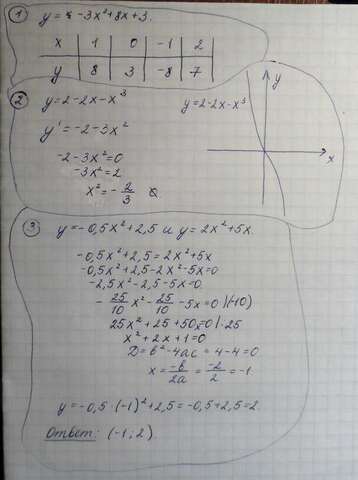 ① y = -3x²+8x+3.
x | 1 | 0 | -1 | 2
y | 8 | 3 | -8 | 7
② y=2-2x-x³ y=2-2x-x³ y
y' = -2-3x²
-2-3x²=0 x
-3x²=2
x² = -2/3 Ø.
③ y=-0,5x²+2,5 и y=2x²+5x.
-0,5x²+2,5=2x²+5x
-0,5x²+2,5-2x²-5x=0
-2,5x²-2,5-5x=0
-25/10 x² - 25/10 -5x=0 |(-10)
25x²+25+50=0 |:25
x²+2x+1=0
D=b²-4ac = 4-4=0
x = -b/2a = -2/2 = -1.
y=-0,5·(-1)²+2,5=-0,5+2,5=2.
Ответ: (-1; 2).